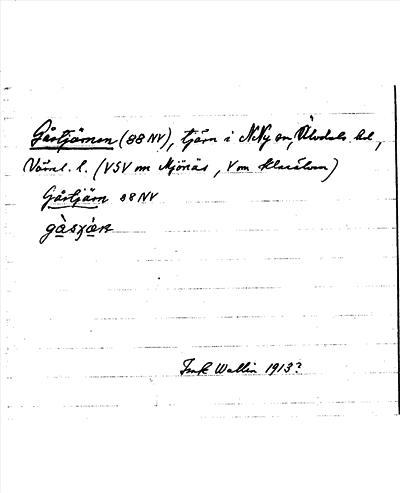 Gåstjärnen (88 NV), tjärn i N. Ny sn, Älvdals hd,
Värml. l. (VSV om Mjönäs, V om Klarälven)
Gåstjärn 88 NV
Wallin 1913?